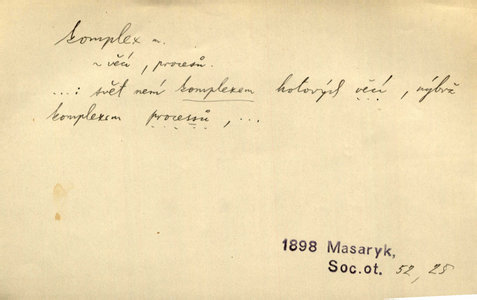 komplex m.
~ věcí, procesů.
...: svět není komplexem hotových věcí, nýbrž
komplexem processů, ...
1898 Masaryk,
Soc.ot. 52, 25